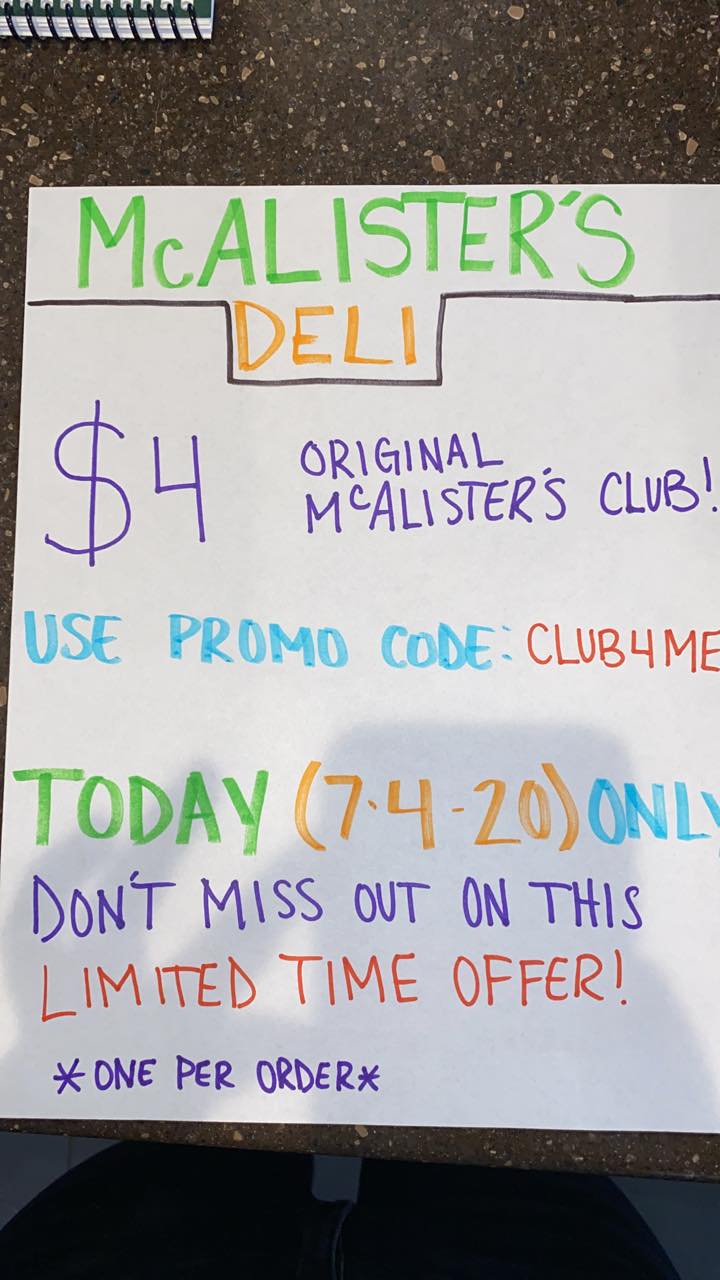 McALISTER'S
DELI
$4 ORIGINAL
McALISTER'S CLUB!
USE PROMO CODE: CLUB4ME
TODAY (7·4-20) ONLY
DON'T MISS OUT ON THIS
LIMITED TIME OFFER!
*ONE PER ORDER*